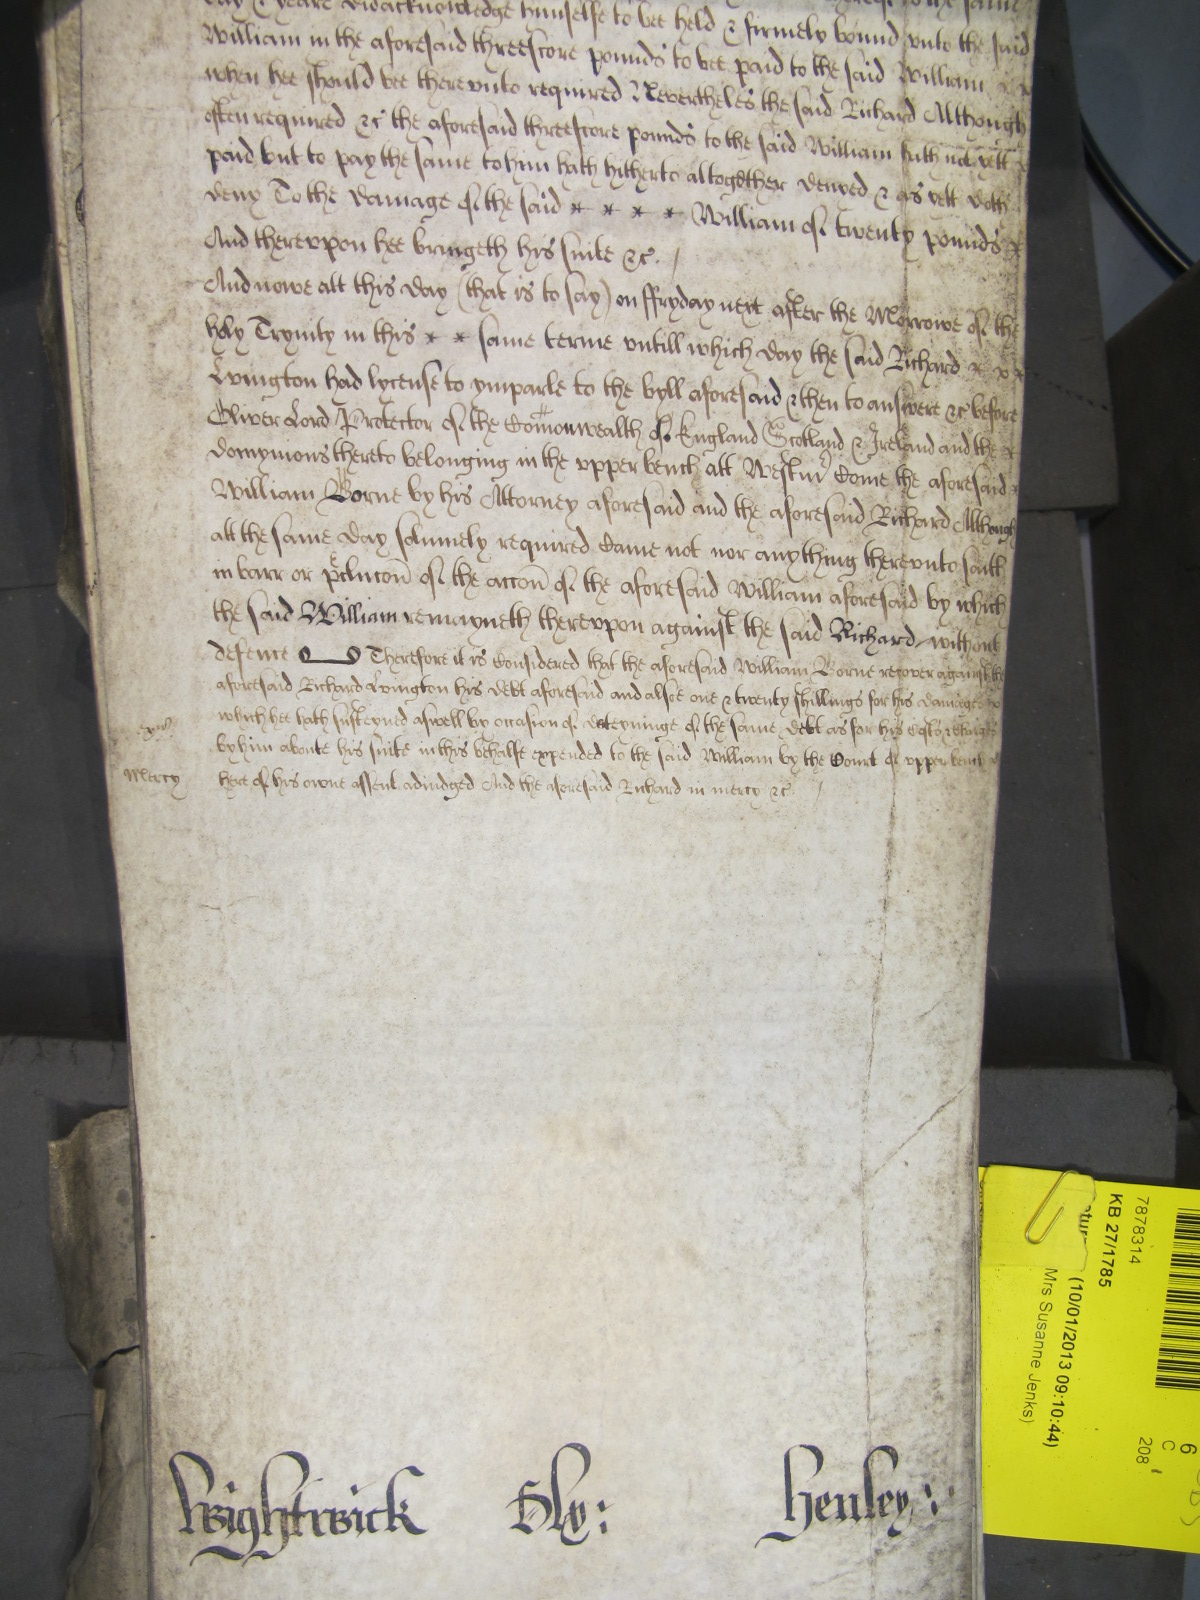 day & yeare did acknowledge himselfe to bee held & firmely bound unto the said
William in the aforesaid threescore pounds to bee paid to the said William
when hee should bee thereunto required Neverthelesse the said Richard Although
often required &c the aforesaid threescore pounds to the said William hath not yett
paid but to pay the same to him hath hitherto altogether denyed & as yett doth
deny To the damage of the said William of twenty pounds
And thereupon hee bringeth his suite &c. /
And nowe att this day (that is to say) on ffryday next after the Morrowe of the
holy Trynity in this same terme untill which day the said Richard
Lvington had lycense to ymparle to the byll aforesaid & then to answere &c before
Oliver Lord Protector of the Comonwealth of England Scotland & Ireland and the
domynions thereto belonging in the upper bench att Westmr Come the aforesaid
William Borne by his Attorney aforesaid and the aforesaid Richard Although
att the same day solemnely required Came not nor anything thereunto saith
in barr or pclucon of the accon of the aforesaid William aforesaid by which
the said William remayneth thereupon against the said Richard without
defence Therefore it is Considered that the aforesaid William Borne recover against the
aforesaid Richard Lvington his debt aforesaid and alsoe one & twenty shillings for his damages
which hee hath susteyned aswell by occasion of deteyninge of the same debt as for his Costs & charges
by him aboute his suite in this behalfe expended to the said William by the Court of upper bench
Mercy
here of his owne assent adiudged And the aforesaid Richard in mercy &c. /
Wightwick Oly: Henley:
7878314
KB 27/1785
(10/01/2013 09:10:44)
Mrs Susanne Jenks)
6
C
208